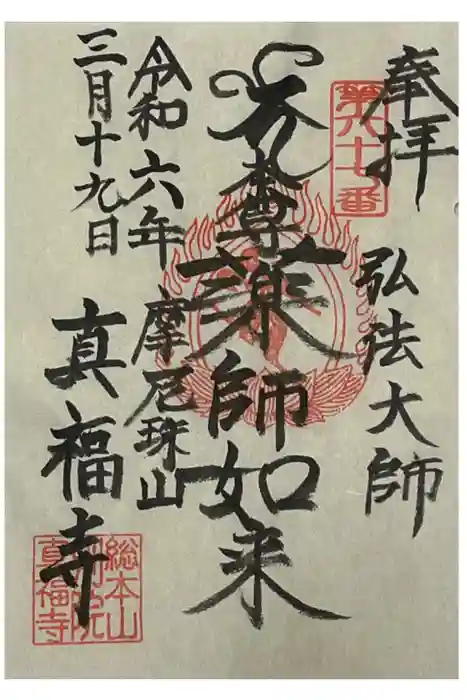 奉拝
弘法大師
第六十七番
本尊薬師如来
令和六年
三月十九日
摩尼珠山
真福寺
総本山
別院
真福寺